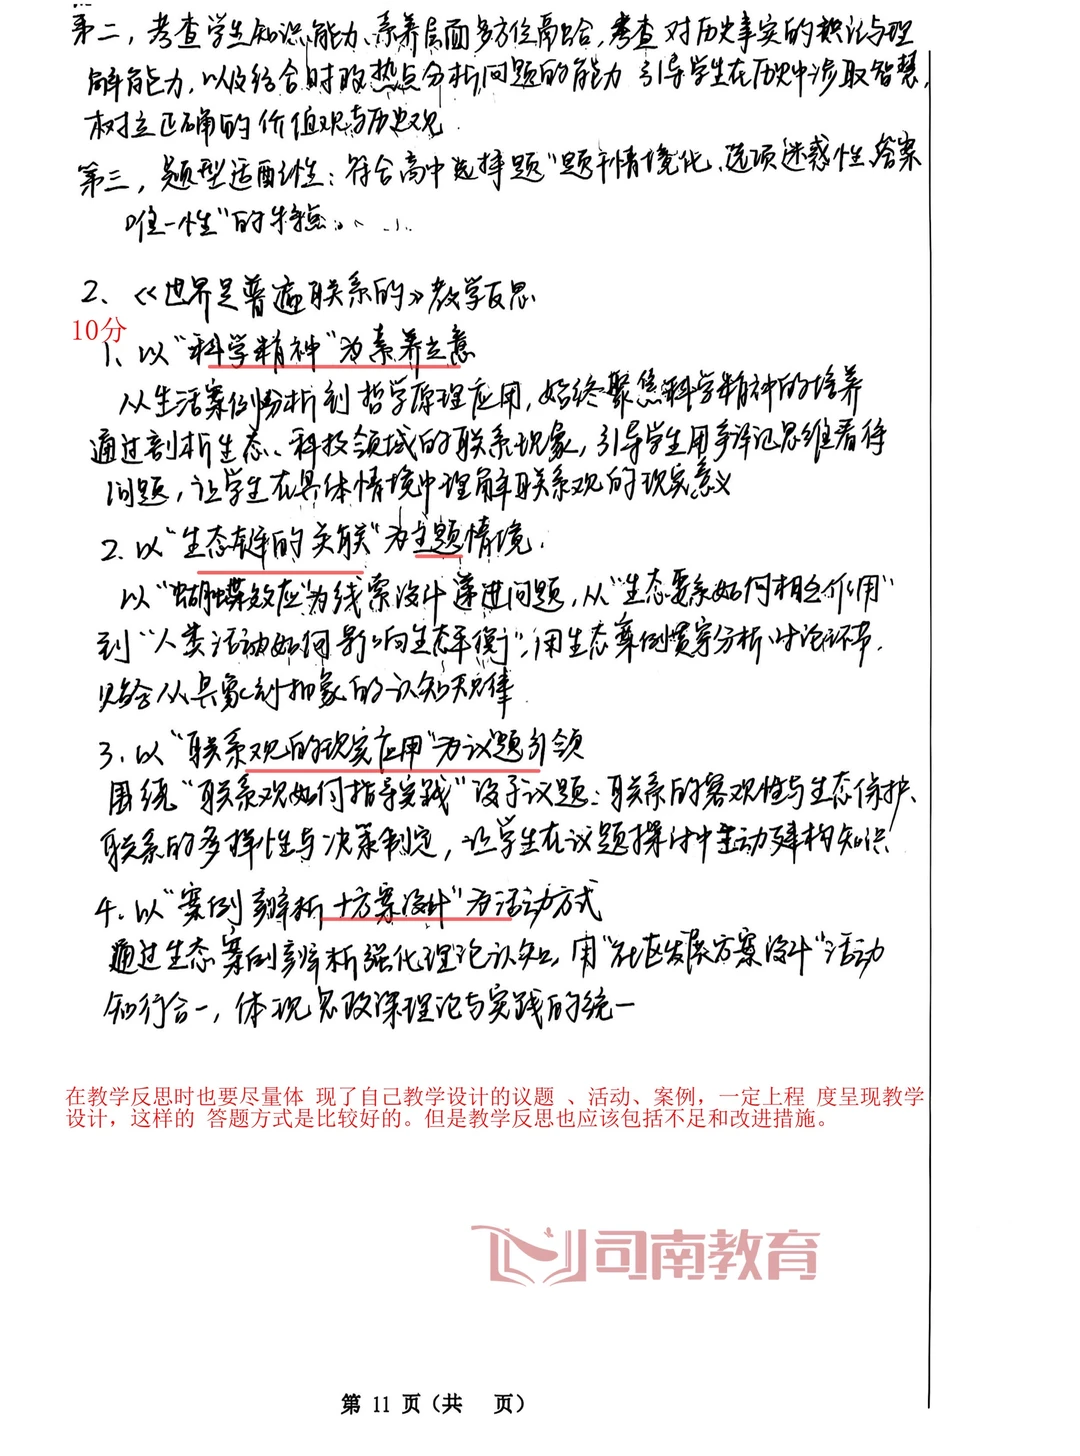 第二，考查学生知识、能力、素养层面多方位融合，考查对历史事实的识记与理
解能力，以及结合时政热点分析问题的能力 引导学生在历史中涉取智慧，
树立正确的价值观与历史观.
第三，题型适配性：符合高中选择题"题干情境化、选项迷惑性、答案
唯一性"的特点。
2、《世界是普遍联系的》教学反思
10分
1、以"科学精神"为素养立意
从生活案例分析到哲学原理应用，始终聚焦科学精神的培养
通过剖析生态、科技领域的联系现象，引导学生用辩证思维看待
问题，让学生在具体情境中理解联系观的现实意义
2.以"生态链的关联"为主题情境.
以"蝴蝶效应"为线索设计递进问题，从"生态要素如何相互作用"
到"人类活动如何影响生态平衡"，用生态案例贯穿分析、讨论环节.
贴合从具象到抽象的认知规律.
3.以"联系观的现实应用"为议题引领
围绕"联系观如何指导实践"设子议题：联系的客观性与生态保护、
联系的多样性与决策制定，让学生在议题探讨中主动建构知识
4.以"案例辨析+方案设计"为活动方式
通过生态案例辨析强化理论认知，用"社区发展方案设计"活动
知行合一，体现思政课理论与实践的统一
在教学反思时也要尽量体 现了自己教学设计的议题 、活动、案例，一定上程 度呈现教学
设计，这样的 答题方式是比较好的。但是教学反思也应该包括不足和改进措施。
司南教育
第 11 页（共 页）